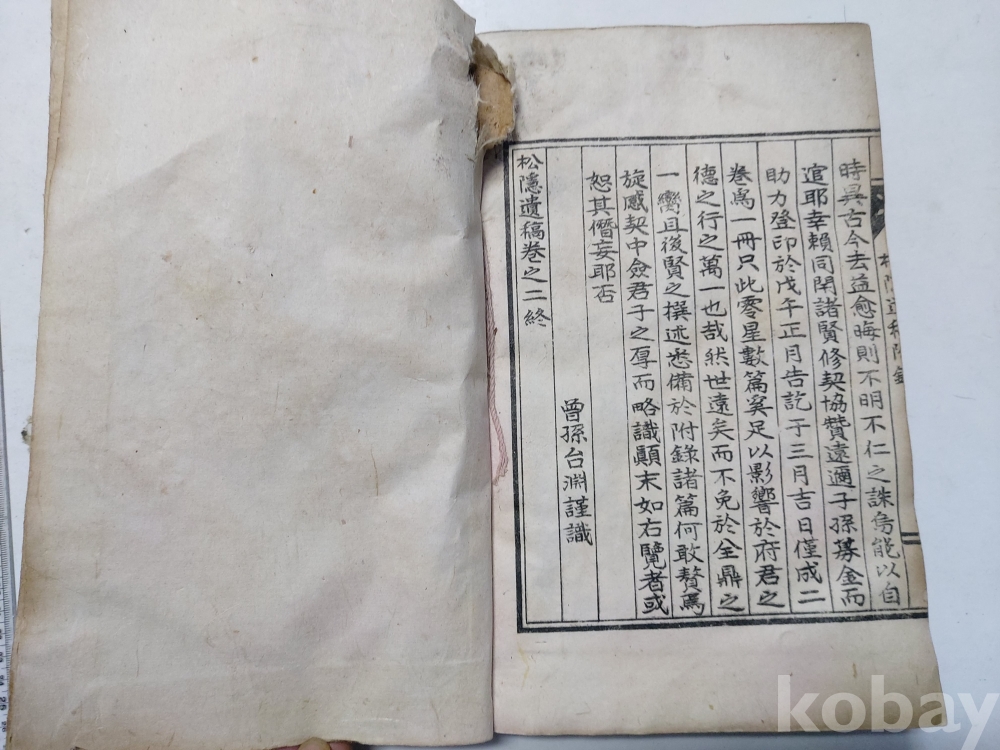 時異古今去益愈晦則不明不仁之誅烏能以自
逭耶幸賴同閈諸賢修契協贊遠邇子孫募金而
助力登印於戊午正月告訖于三月吉日僅成二
卷爲一冊只此零星數篇奚足以影響於府君之
德之行之萬一也哉然世遠矣而不免於全鼎之
一臠且後賢之撰述悉備於附錄諸篇何敢贅焉
旋感契中僉君子之厚而略識顚末如右覽者或
恕其僭妄耶否
曾孫台淵謹識
松隱遺稿卷之二終
kobay